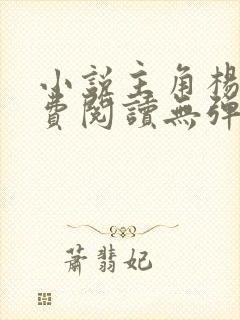 小說主角楊
費閱讀無彈
蕭翡妃